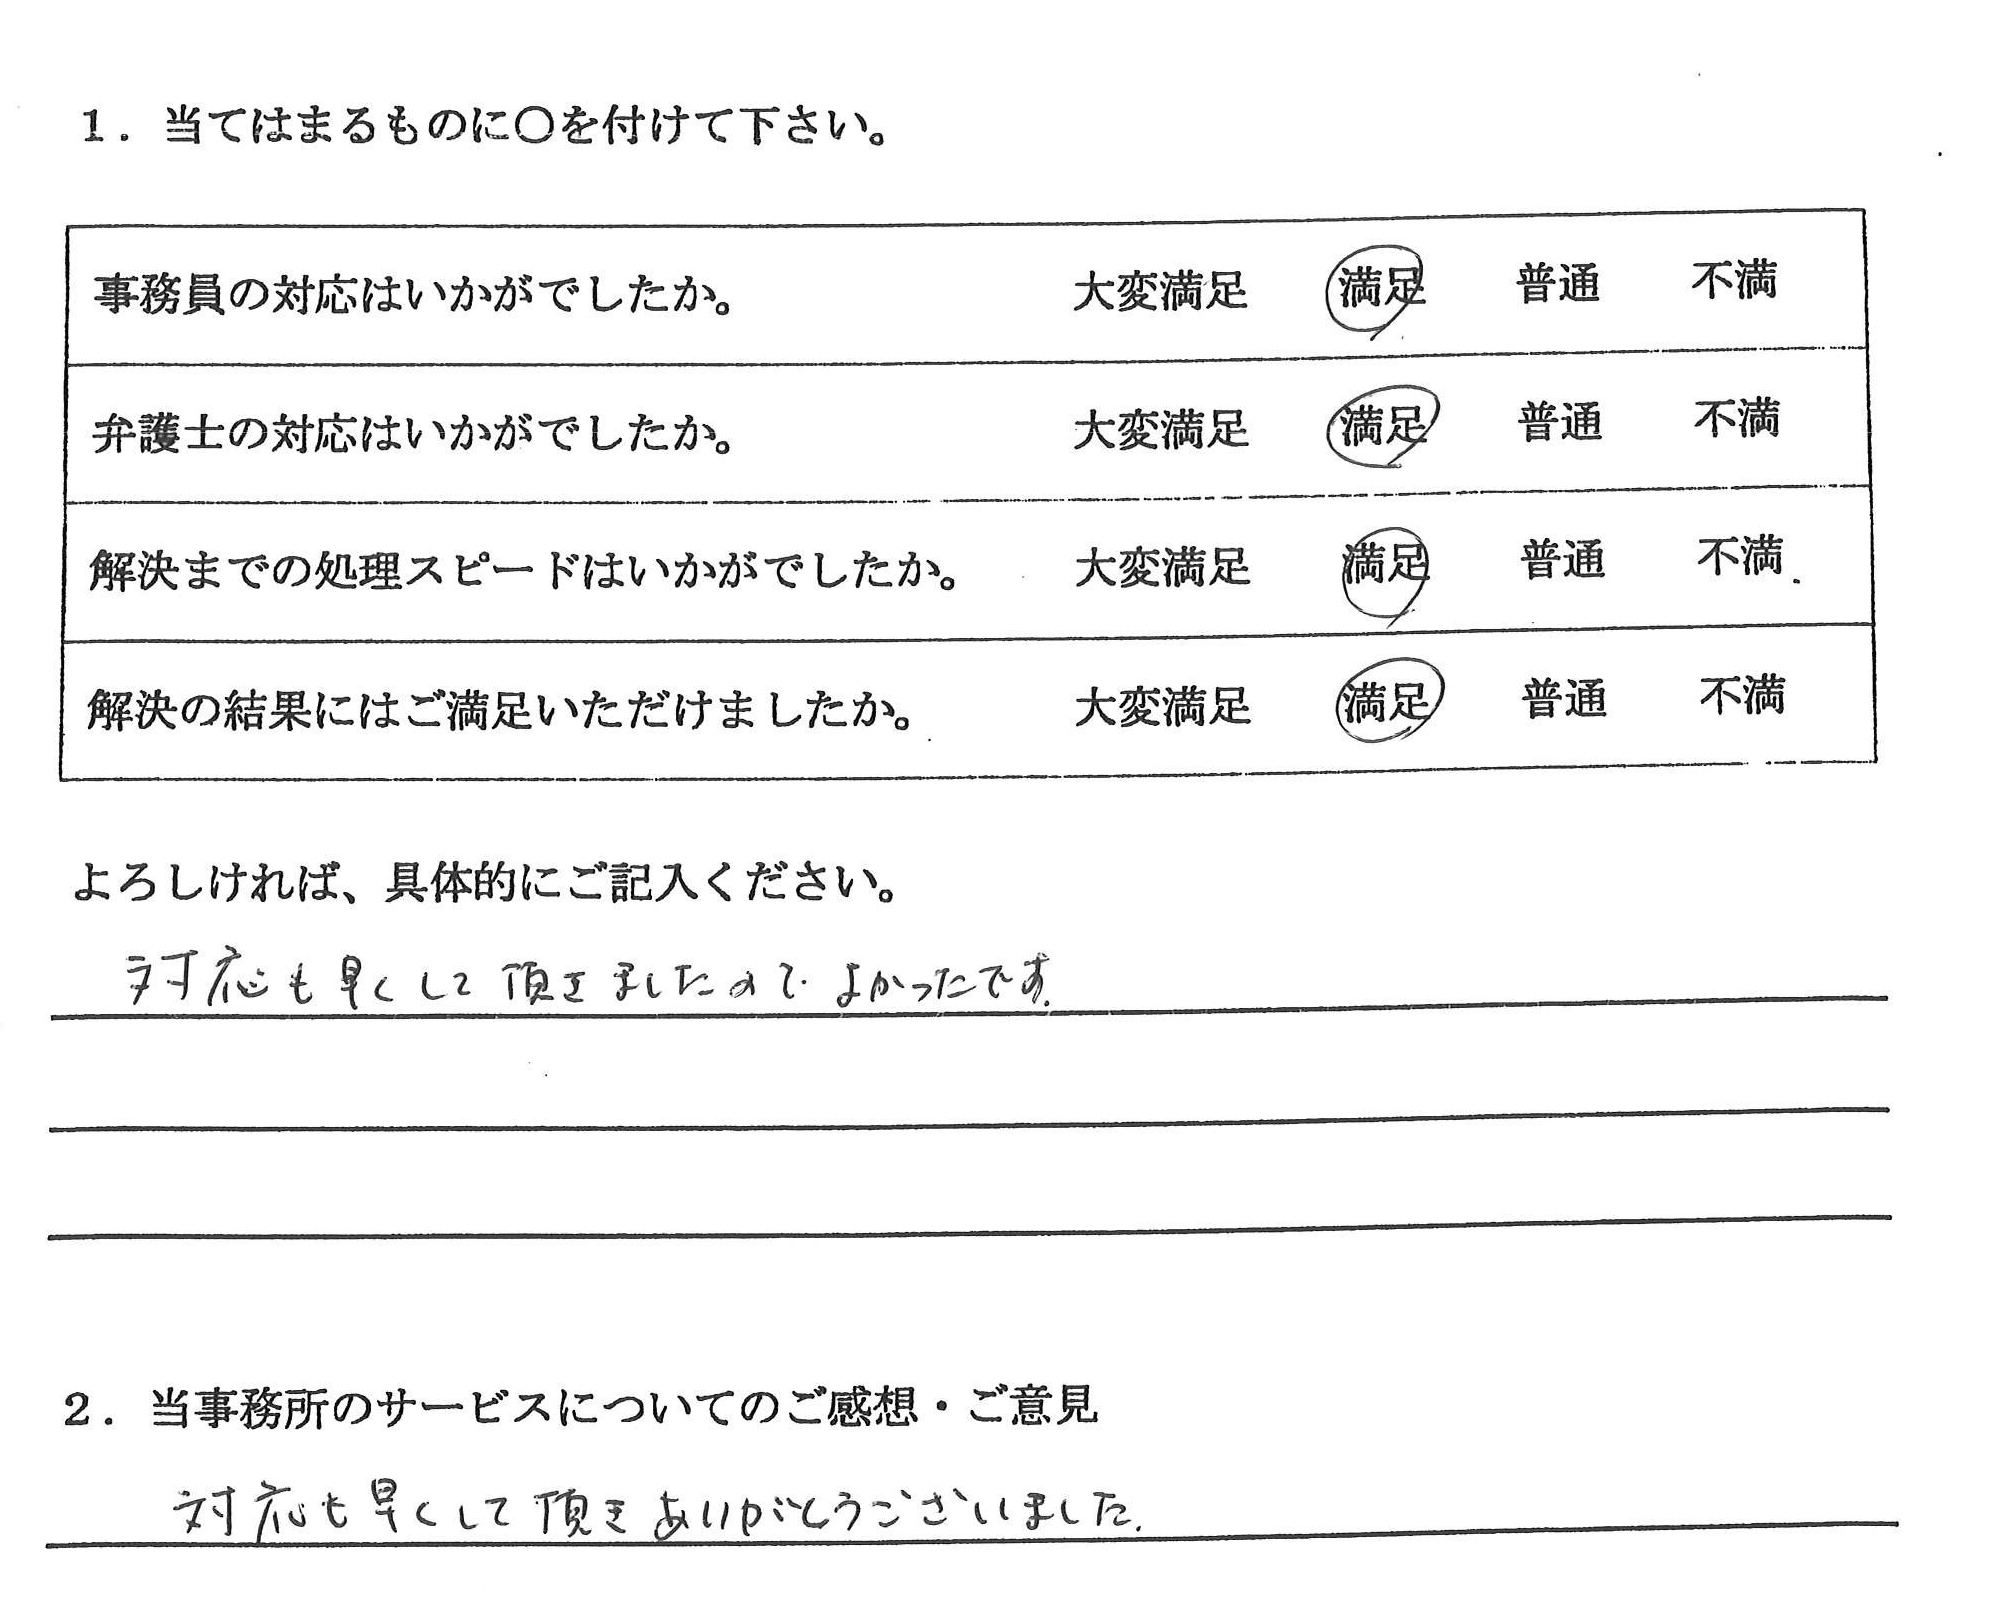 1．当てはまるものに〇を付けて下さい。
事務員の対応はいかがでしたか。 大変満足 満足 普通 不満
弁護士の対応はいかがでしたか。 大変満足 満足 普通 不満
解決までの処理スピードはいかがでしたか。 大変満足 満足 普通 不満
解決の結果にはご満足いただけましたか。 大変満足 満足 普通 不満
よろしければ、具体的にご記入ください。
対応も早くして頂きましたので よかったです。
2．当事務所のサービスについてのご感想・ご意見
対応も早くして頂きありがとうございました。